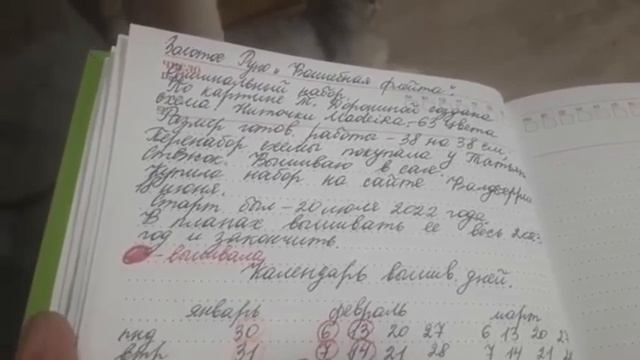 Золотое Руно „Волшебная флейта"
Оригинальный набор.
По картине М. Ворониной создана
схема. Ниточки Madeira - 63 цвета
Размер готов. работы - 38 на 38 см.
Перенабор схемы покупала у Татьян
Стенюк. Вышиваю в сале.
Купила набор на сайте Валдберрис
18 июня.
Старт был - 20 июля 2022 года
В планах вышивать её весь
год и закончить.
- вышивала
Календарь вышив. дней.
январь февраль март
пнд 30 6 13 20 27 6 13 20 2
втр 31 7 14 21 28 7 14 21